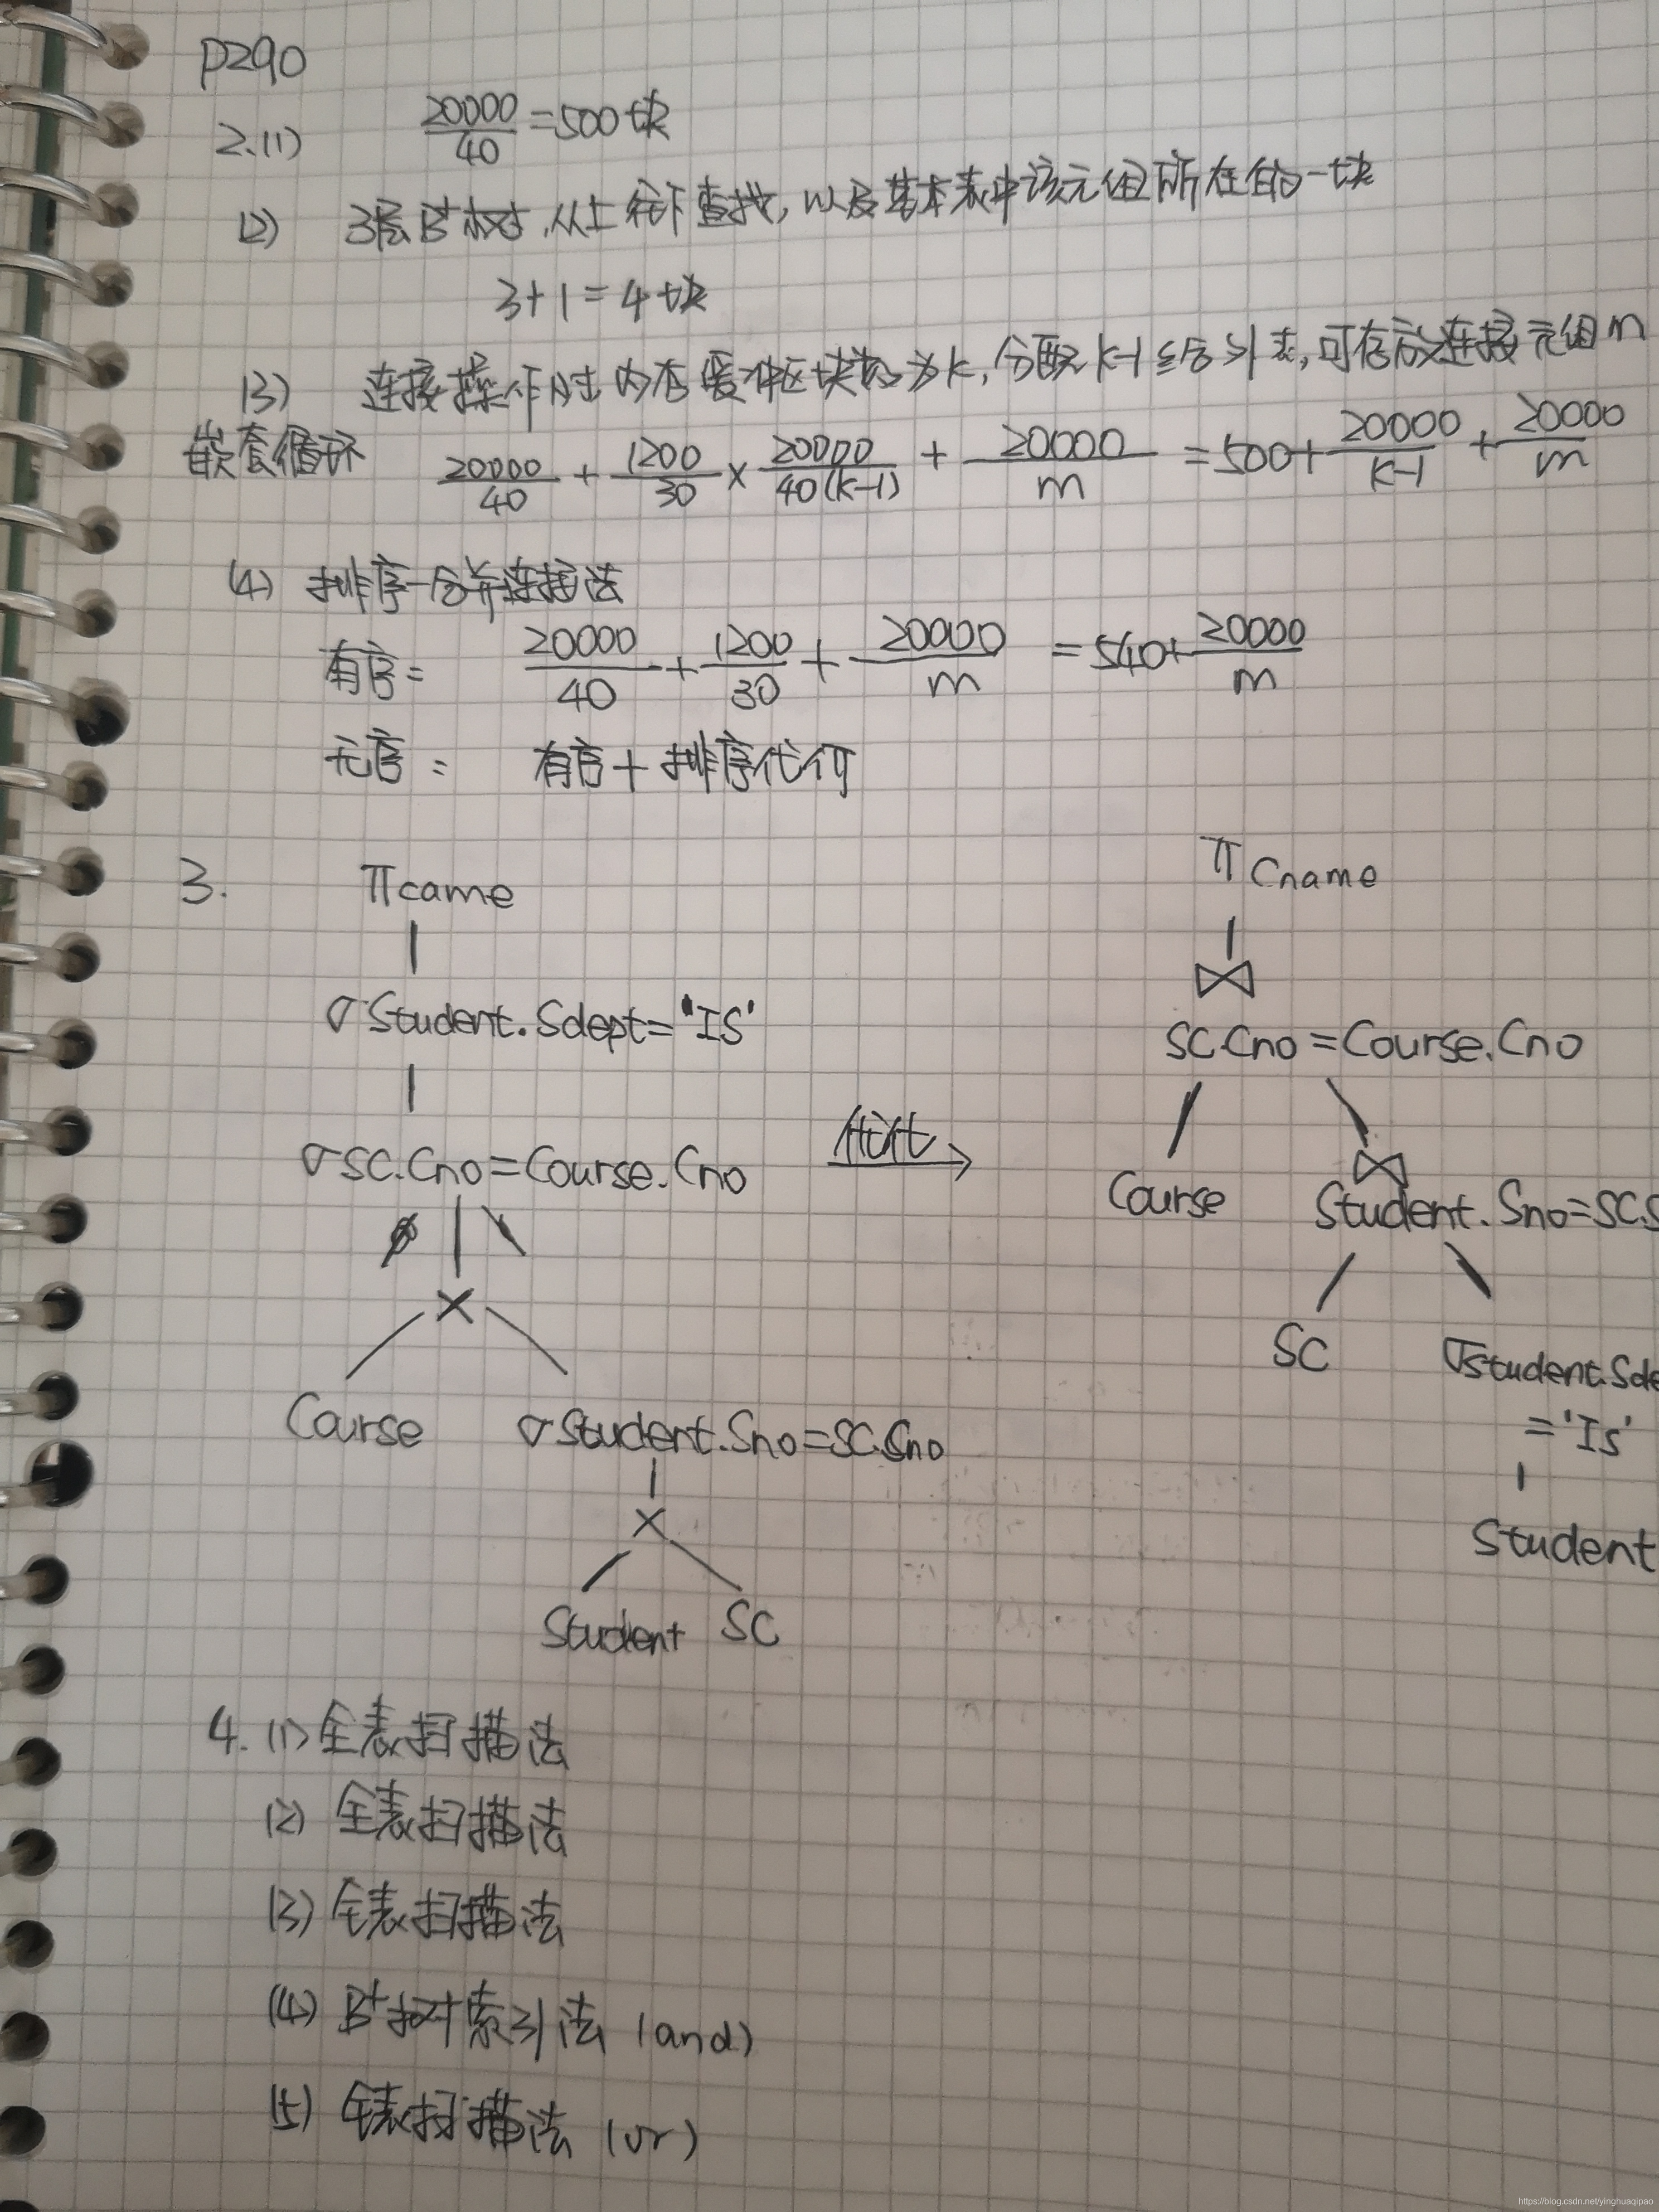 P290
2.(1) 20000/40 =500块
(2) 3层B+树,从上往下查找,以及基本表中该元组所在的一块
3+1=4块
(3) 连接操作时内存缓冲区块数为k,分配k-1给外表,可存放连接元组m
嵌套循环 20000/40 + 1200/30 × 20000/40(k-1) + 20000/m =500+ 20000/k-1 + 20000/m
(4) 排序-合并连接法
有序= 20000/40 + 1200/30 + 20000/m =540+ 20000/m
无序= 有序+排序代价
3. πcame
σStudent.Sdept='IS'
σSC.Cno=Course.Cno
×
Course σStudent.Sno=SC.Sno
×
Student SC
优化
π Cname
⋈
SC.Cno=Course.Cno
Course ⋈
Student.Sno=SC.S
SC σStudent.Sde
='Is'
Student
4.(1)全表扫描法
(2)全表扫描法
(3)全表扫描法
(4)B+树索引法(and)
(5)全表扫描法(or)
https://blog.csdn.net/yinghuaqipao